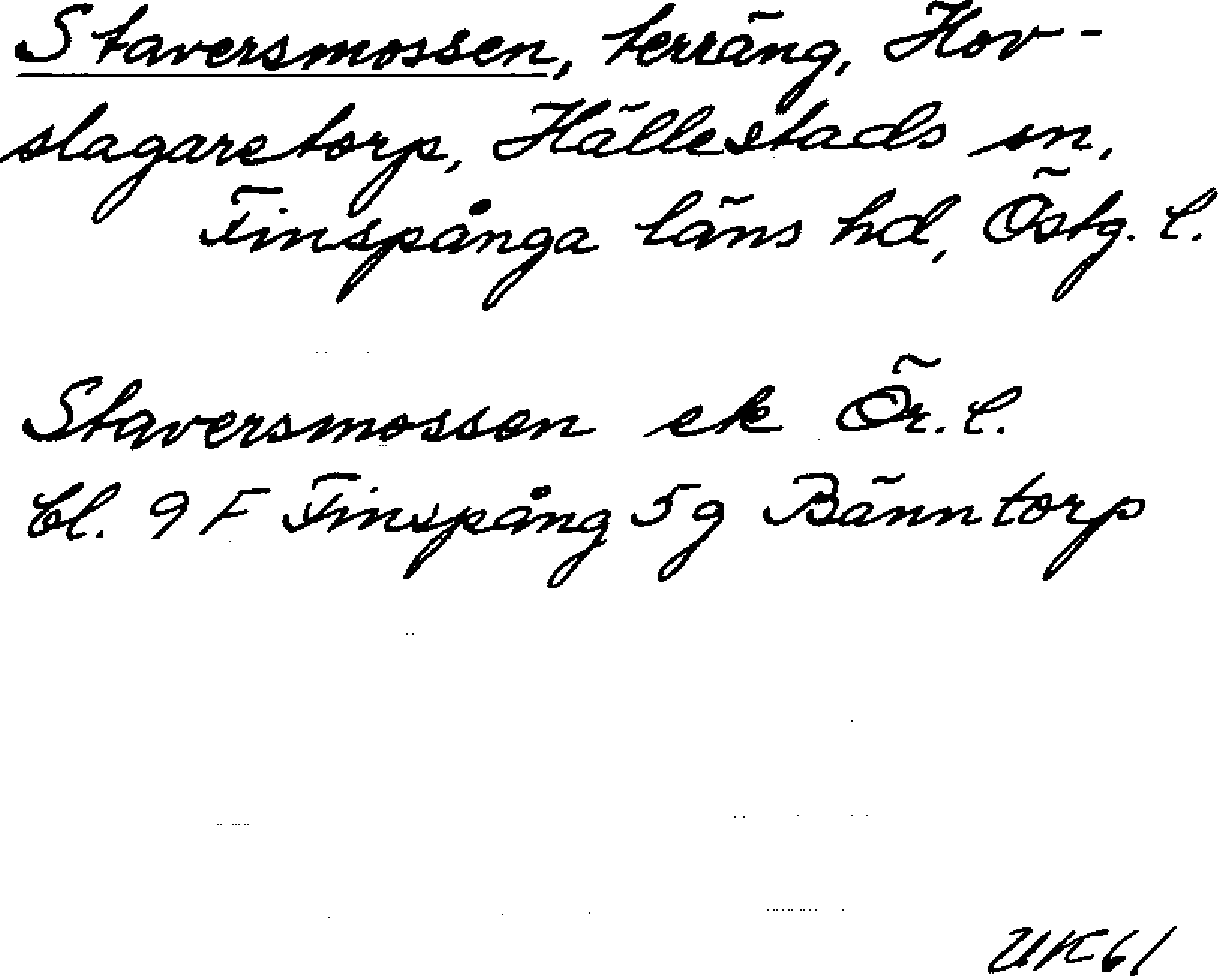 Staversmossen, terräng, Hov-
slagaretorp, Hällestads sn,
Finspånga läns hd, Östg. l.
Staversmossen ek Ör. l.
bl. 9 F Finspång 5 g Bänntorp
UK61